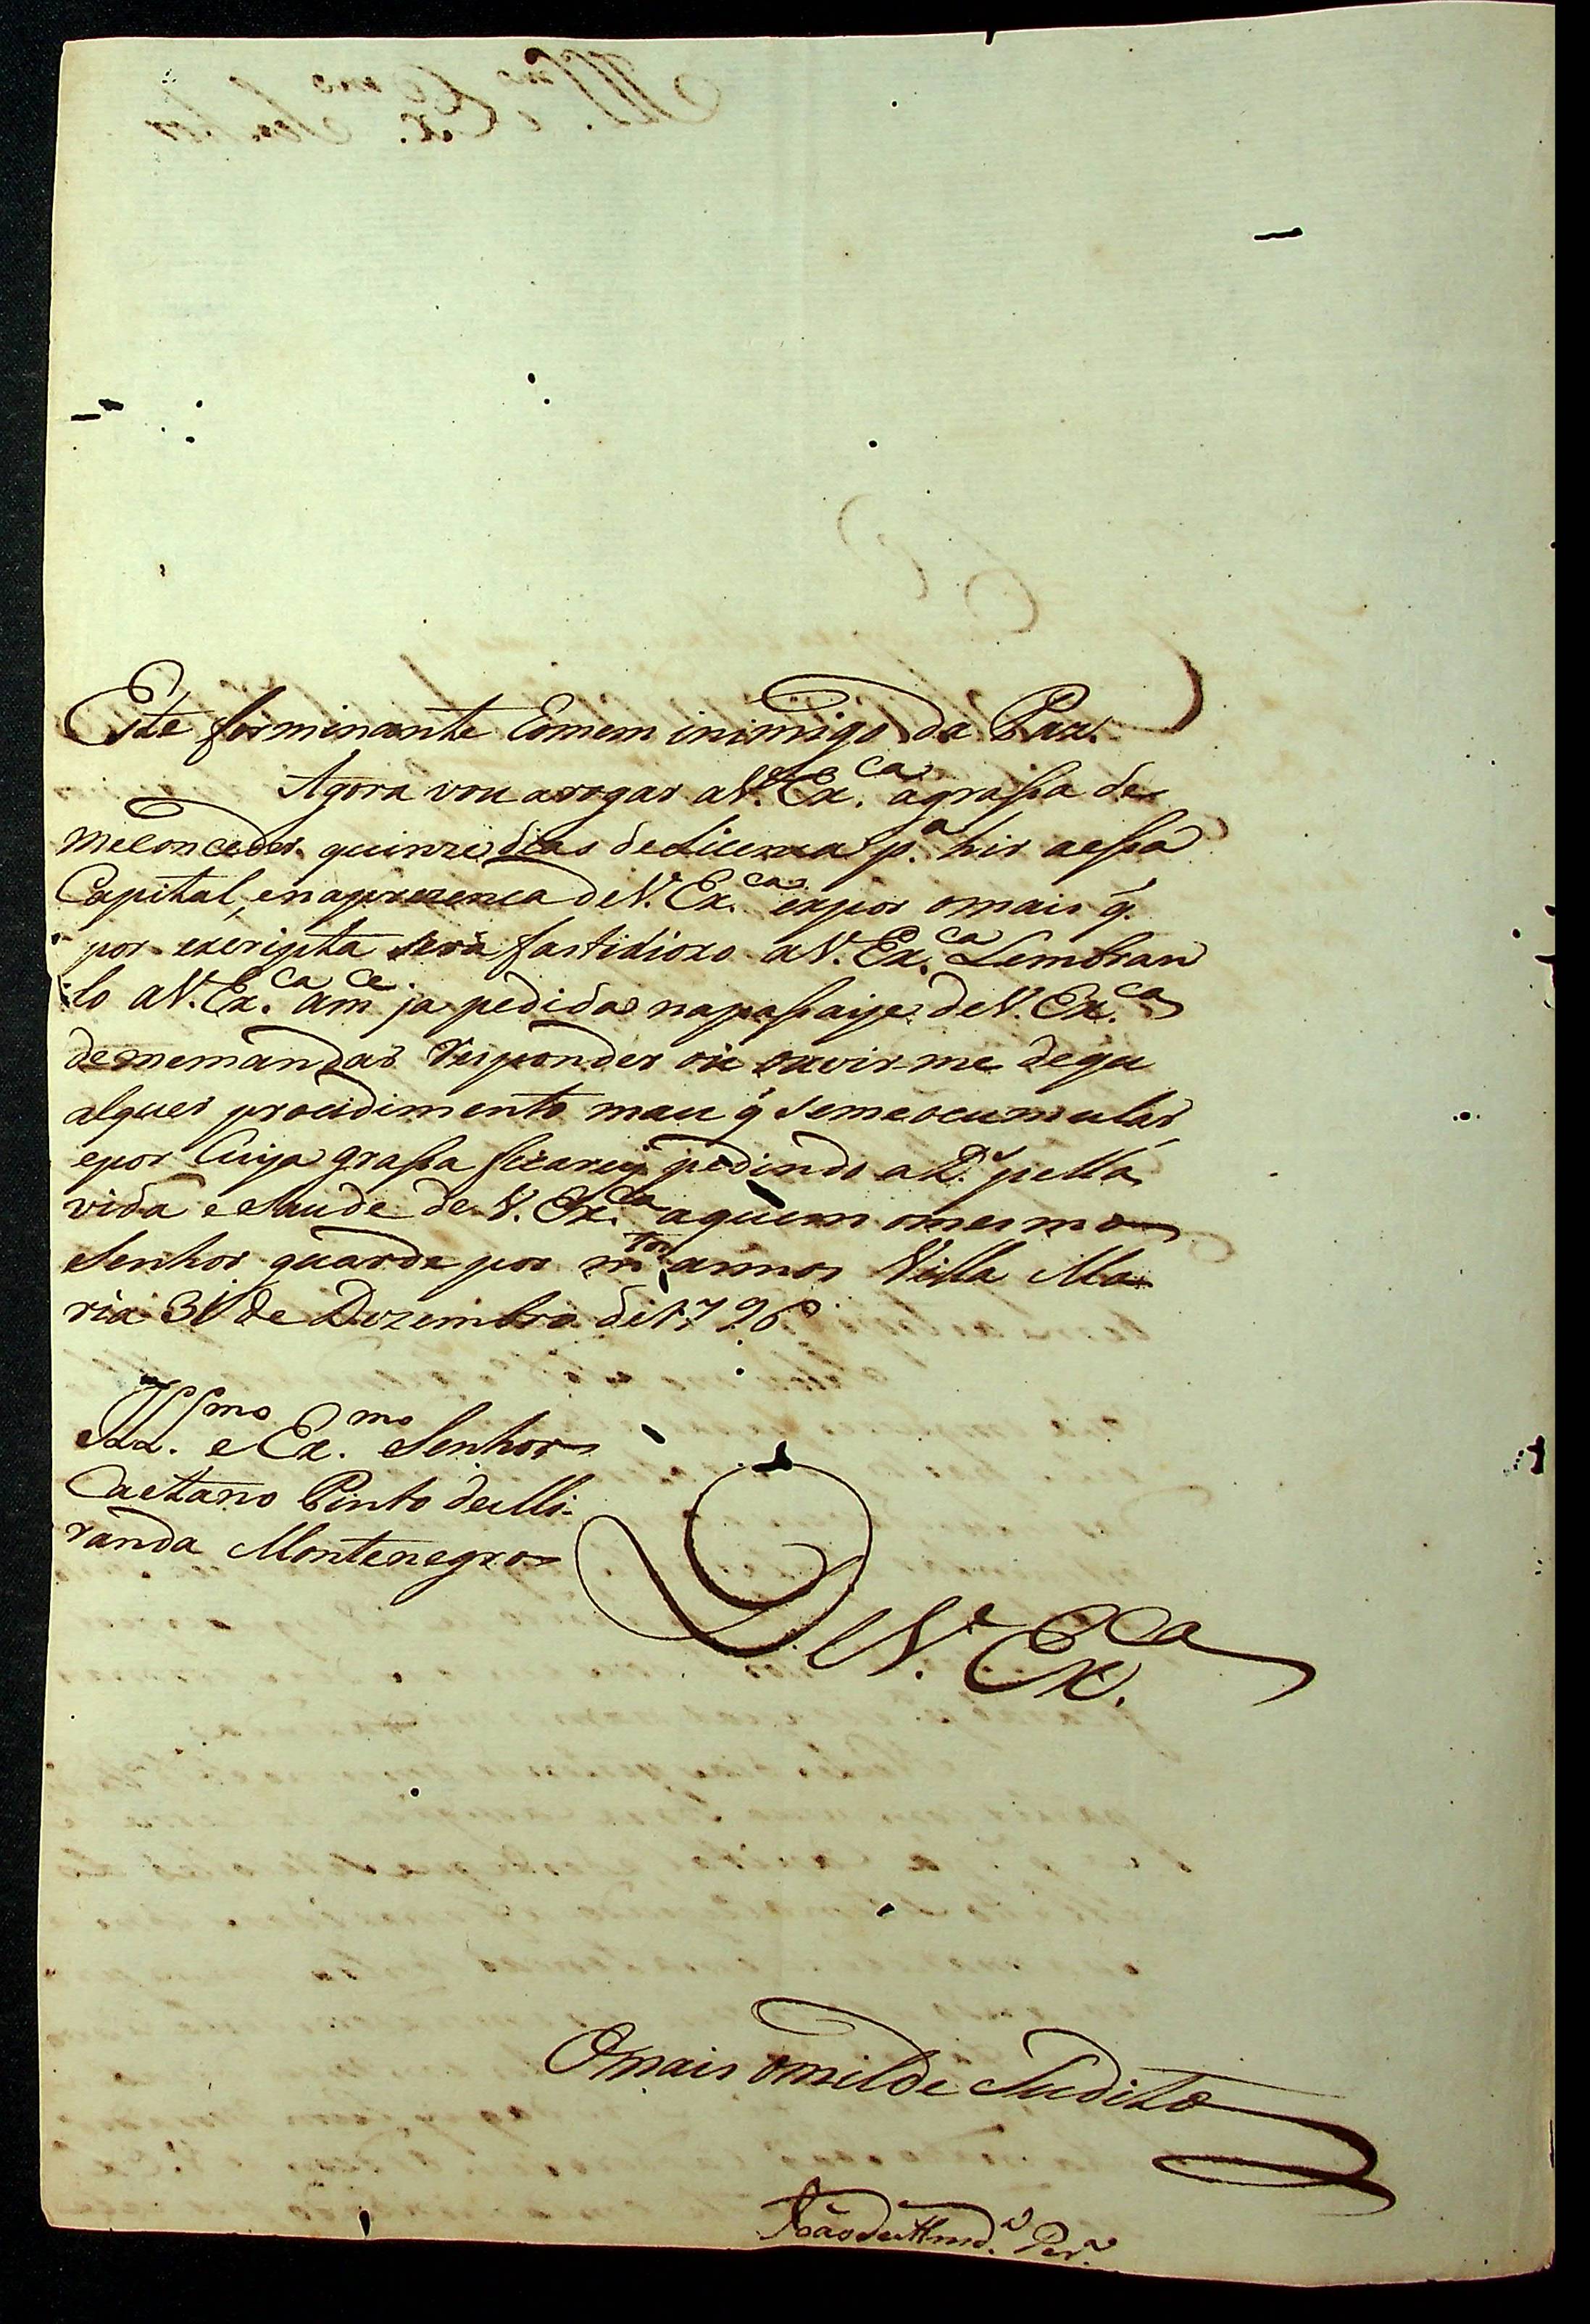 Este forminante Comem inimigo da Paz.
Agora vou arogar aV. Ex.ca agrassa de
meConceder quinze dias deLicenca p.a hir aessa
Capital, enaprezenca deV. Ex.ca expor omais q̃.
por exeripta será fastidiozo aV. Ex.ca Lembran
do aV. Ex.ca am.ce ja pedida napassaije deV. Ex.ca
dememandar Responder ou ouvir-me dequ
alquer procidimento mau q̃ Semeocumular,
epor Cuja grassa ficarey pedindo a D.s pella
vida eSaude de V. Ex.ca aquem omesmo
Senhor guarde por m.tos annos Villa Ma
ria 31 de Dezembro de1796
Ill.mo e Ex.mo Senhor
Caetano Pinto deMi-
randa Montenegro
De V. Ex.ca
Omais omilde Sudito
João deAlmd.a Per.a